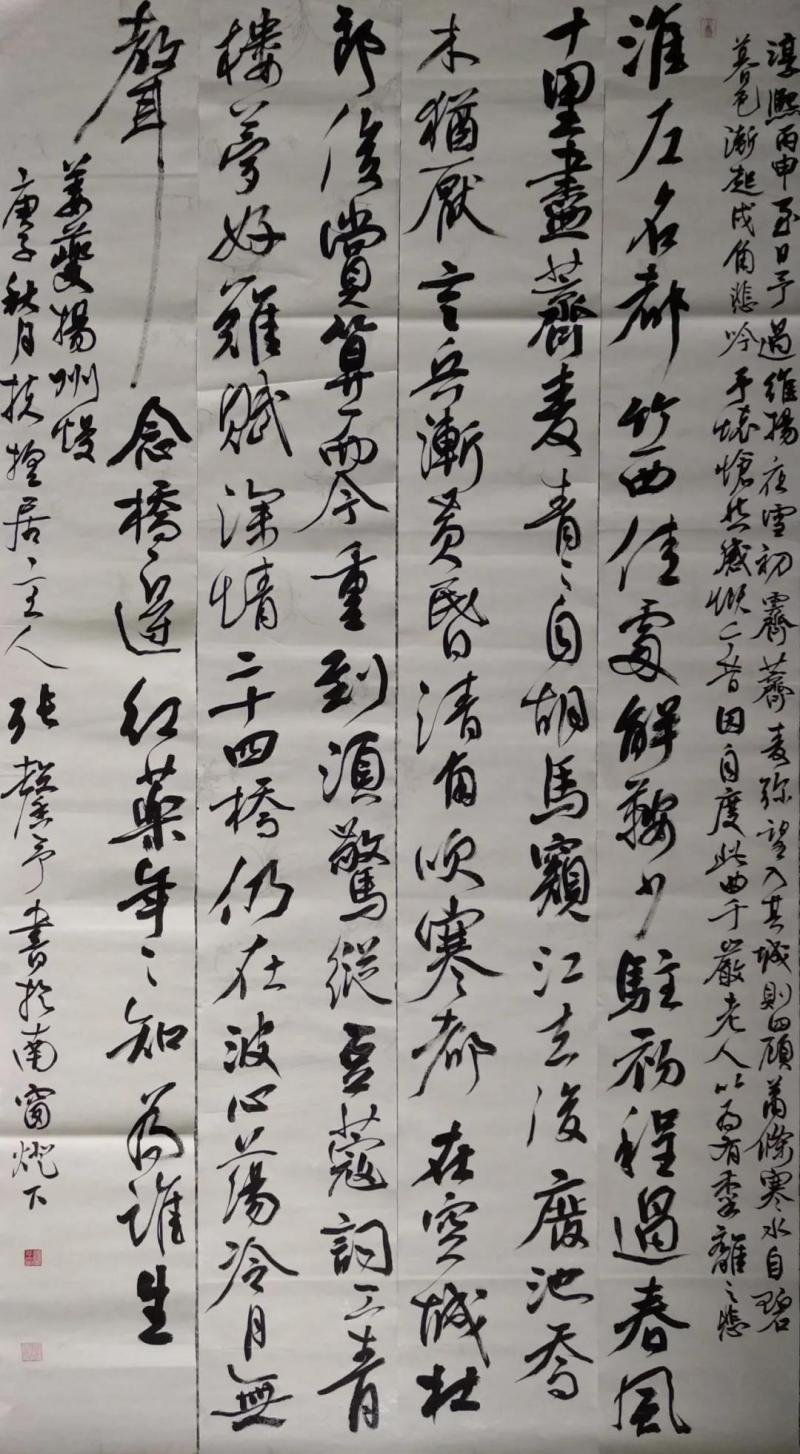 淳熙丙申至日予過維揚夜雪初霽薺麦弥望入其城則四顧蕭條寒水自碧
暮色漸起戍角悲吟予懷愴然感慨今昔因自度此曲千巖老人以為有黍離之悲
淮左名都竹西佳處解鞍少駐初程過春風
十里盡薺麦青々自胡馬窺江去後廢池喬
木猶厭言兵漸黄昏清角吹寒都在空城杜
郎俊賞算而今重到須驚縱豆蔻詞工青
樓夢好難賦深情二十四橋仍在波心蕩冷月無
聲念橋邊红藥年々知為誰生
姜夔揚州慢
庚子秋月居主人張馨予書於南窗燈下